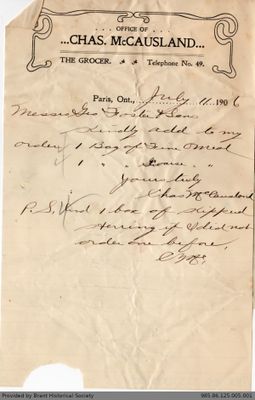 OFFICE OF
...CHAS. McCAUSLAND...
THE GROCER. Telephone No. 49.
Paris, Ont., July 11 1906
Messrs Geo Foster & Sons
Kindly add to my
order 1 Bag of Fine Meal
1 " " Coarse "
Yours truly
Chas McCausland
P.S. Send 1 box of
Herring if I did not
order one before.
C Mc.
Provided by Brant Historical Society
985.86.125.005.001